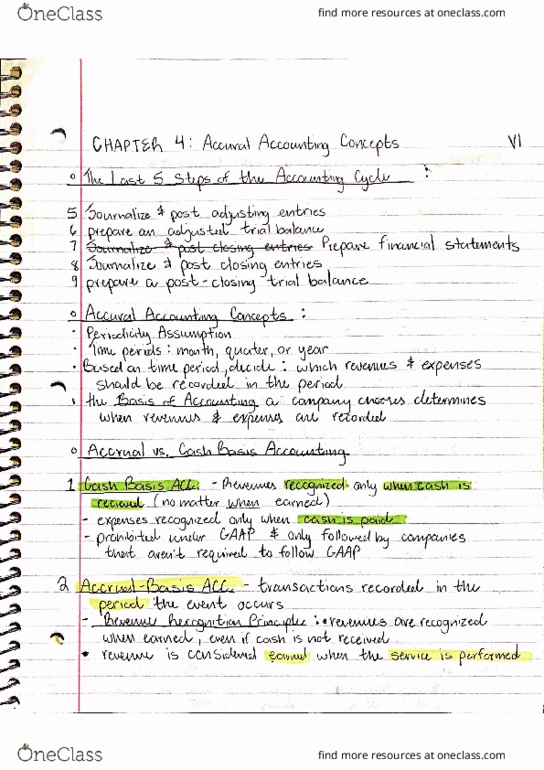 OneClass
find more resources at oneclass.com
CHAPTER 4: Accural Accounting Concepts VI
The Last 5 Steps of the Accounting Cycle :
5 Journalize & post adjusting entries
6 prepare an adjusted trial balance
7 Journalize & post closing entries Prepare financial statements
8 Journalize & post closing entries
9 prepare a post-closing trial balance
Accural Accounting Concepts :
· Periodicity Assumption
· Time periods : month, quater, or year
· Based on time period, decide : which revenues & expenses
should be recorded in the period
· the Basis of Accounting a company chooses determines
when revenues & expenses are recorded
Accrual vs. Cash Basis Accounting
1 Cash Basis ACC. - Revenues recognized only when cash is
recieved (no matter when earned)
- expenses recognized only when cash is paid
- prohibited under GAAP & only followed by companies
that aren't required to follow GAAP
2 Accrual-Basis ACC. - transactions recorded in the
period the event occurs
- Revenue Recognition Principle : • revenues are recognized
when earned, even if cash is not received
• revenue is considered earned when the service is performed
OneClass
find more resources at oneclass.com